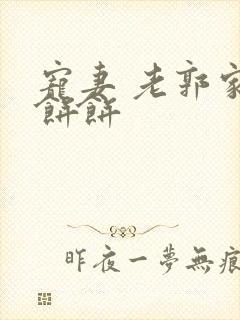 寵妻 老郭家
餅餅
昨夜一夢無痕